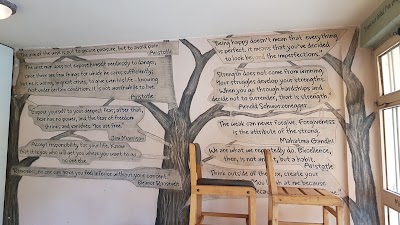 The aim of the wise is not to secure pleasure, but to avoid pain.
Aristotle
The wise man does not expose himself needlessly to danger,
since there are few things for which he cares sufficiently;
but he is willing, in great crises, to give even his life - knowing
that under certain conditions it is not worthwhile to live.
Aristotle
Expose yourself to your deepest fear; after that,
fear has no power, and the fear of freedom
shrinks and vanishes. You are free.
Jim Morrison
Accept responsibility for your life. Know
that it is you who will get you where you want to go,
no one else.
No one can make you feel inferior without your consent.
Eleanor Roosevelt
Being happy doesn't mean that everything
is perfect, it means that you've decided
to look beyond the imperfections.
Strength does not come from winning.
Your struggles develop your strengths.
When you go through hardships and
decide not to surrender, that is strength.
Arnold Schwarzenegger
The weak can never forgive. Forgiveness
is the attribute of the strong.
Mahatma Gandhi
We are what we repeatedly do. Excellence,
then, is not an act, but a habit.
Aristotle
Think outside of the box, create your
You laugh at me because
me because